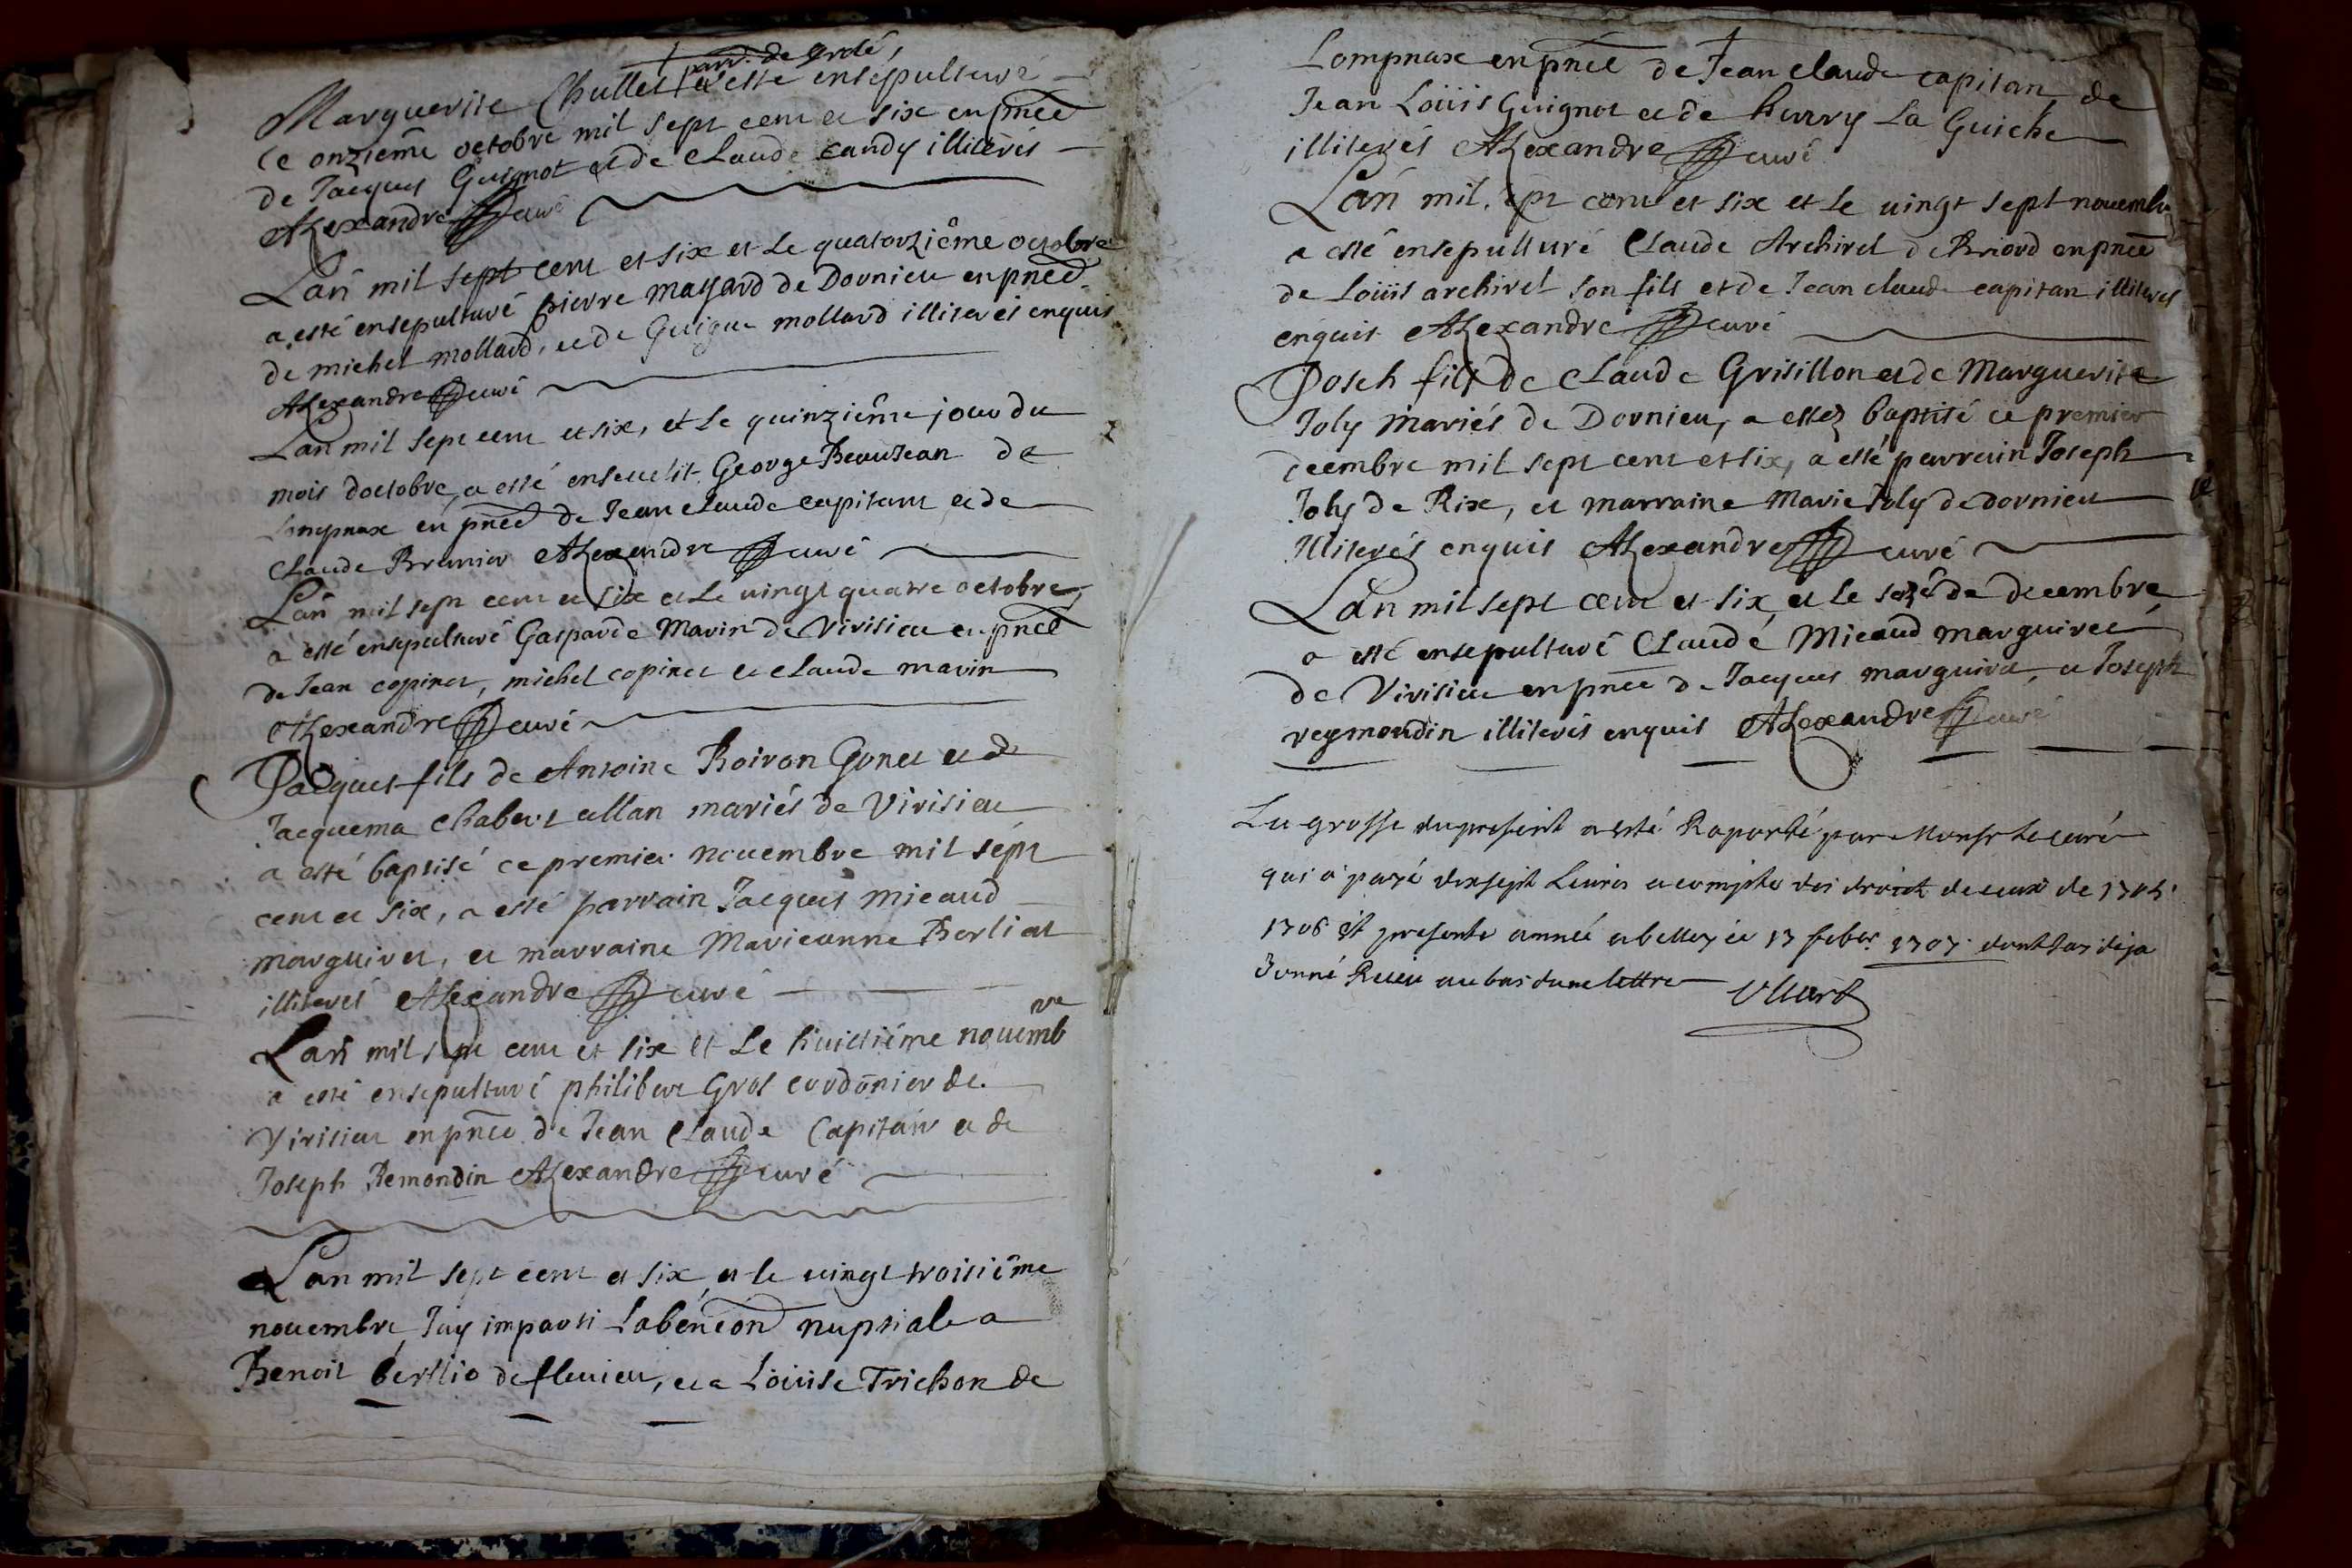 parr. de Ordé,
Marguerite Chullet a esté ensepulturé
ce onziême octobre mil sept cent et six en pñce
de Jacques Guignot et de Claude candy illiterés
Alexandre curé
Lañ mil sept cent et six et Le quatorziême octobre
a esté ensepulturé pierre mayard de Dornieu en pñce
de michel mollard, et de Guigue mollard illiterés enquis
Alexandre curé
Lañ mil sept cent et six, et Le quinziême jour du
mois doctobre, a esté enseuelit George BeauJean de
Lompnax en pñce de Jean claude capitant et de
Claude Brunier Alexandre curé
Lañ mil sept cent et six et Le uingt quatre octobre,
a esté ensepulturé Gasparde Marin de Virisieu en pñce
de Jean copinet, michel copinet et claude marin
Alexandre curé
Jacques fils de Antoine Roivon Gonet et de
Jacquema Chabert allan mariés de Virisieu
a esté baptisé ce premier nouembre mil sept
cent et six, a esté parrain Jacques micaud
marguiret, et marraine Marieanne Berliat
illiterés Alexandre curé
Lañ mil sept cent et six et Le huictiéme nouemb re
a esté ensepulturé philibert Gros cordonier de
Virisieu en pñce de Jean Claude Capitan et de
Joseph Remondin Alexandre curé
Lan mil sept cent et six, et le uingt troisiême
nouembre, Jay imparti La benéon nuptiale a
Benoit berllio de fleuieu, et a Loüise Trichon de
Lompnax en pñce de Jean claude capitan, de
Jean Loüis Guignot et de hurry La Guiche
illiterés Alexandre curé
Lañ mil sept cent et six et Le uingt sept nouembre
a esté ensepulturé Claude Archiret de Briord en pñce
de Loüis archiret son fils et de Jean claude capitan illiterés
enquis Alexandre curé
Joseh fils de Claude Grisillon et de Marguerite
Joly mariés de Dornieu, a estez baptisé ce premier
decembre mil sept cent et six, a esté parrain Joseph
Joly de Rix, et marraine Marie Joly de dornieu
Illiterés enquis Alexandre curé
Lan mil sept cent et six, et Le de decembre
a esté ensepulturé Claude Micaud marguiret
de Virisieu en pñce de Jacques marguiret, et Joseph
reymondin illiterés enquis Alexandre curé
La grosse du present a esté Raporté par Monsr Le curé
qui a payé dixsept Liures a compte des droict de ceux de 1705
1706 et presente année a belley ce 17 feber 1707 dont Jay deja
donné Receu au bas dune lettre